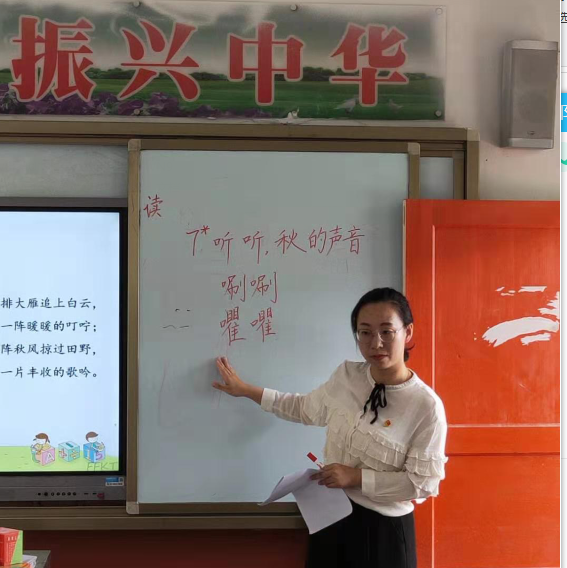 振兴中华
排大雁追上白云，
一阵暖暖的叮咛；
阵秋风掠过田野，
一片丰收的歌吟。
读
7*听听，秋的声音
唰唰
㘗㘗